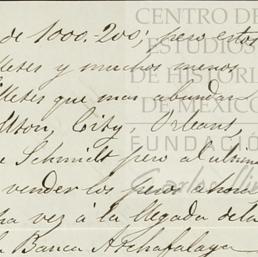 de 1000.-200; pero estos
lletes y muchos menos
lletes que mas abundan
City, Orleans,
Schmidt pero al ultimo
vender los pesos ahora
vez á la llegada de la
Banca Atchafalaya
CENTRO DE
ESTUDIOS
DE HISTORIA
DE MÉXICO
FUNDACIÓN